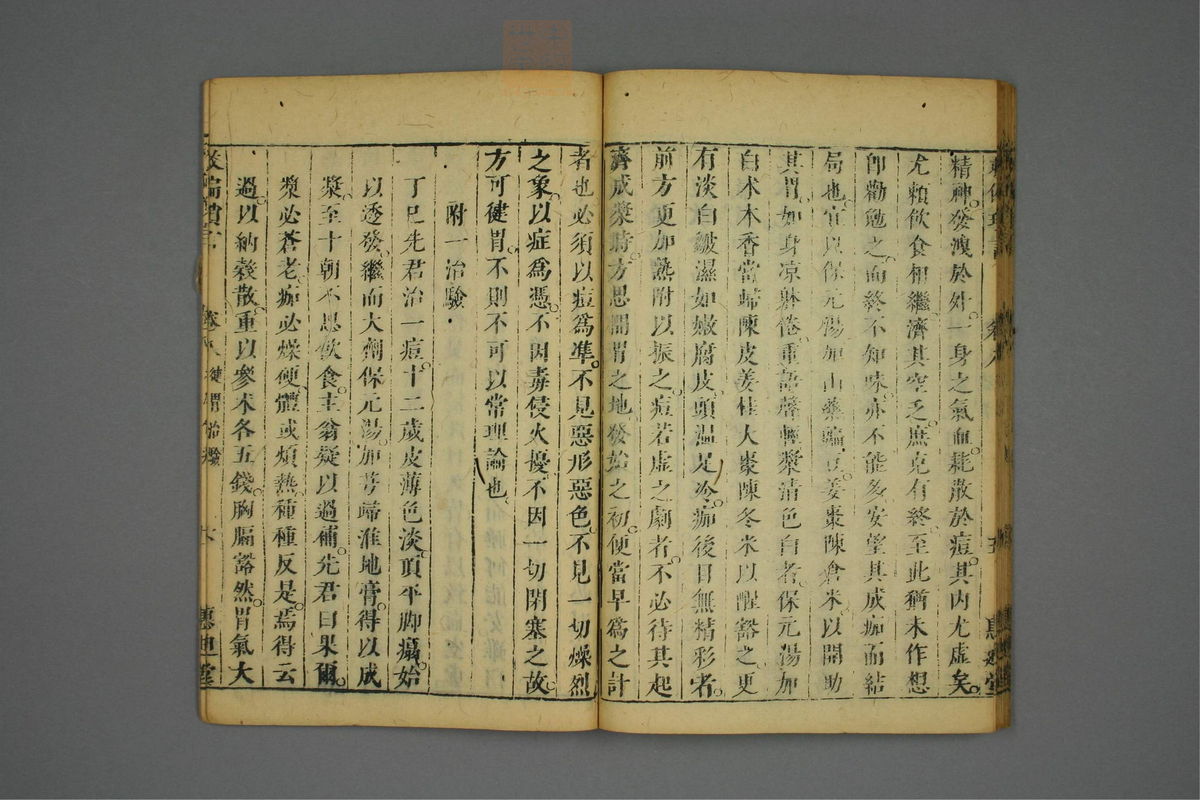 精神發洩於外一身之氣血耗散於痘其内尤虛矣
尤賴飲食相繼濟其空乏庶克有終至此猶未作想
卽勸勉之而終不知味亦不能多安望其成痂而結
局也宜以保元湯加山藥扁豆姜棗陳倉米以開助
其胃如身凉躰倦重語聲輕漿清色白者保元湯加
白术木香當歸陳皮姜桂大棗陳冬米以醒豁之更
有淡白皺濕如嫩腐皮頭温足冷痂後目無精彩者
前方更加熟附以振之痘若虛之劇者不必待其起
齊成漿時方思開胃之地發始之初便當早爲之計
者也必須以痘爲準不見惡形惡色不見一切燥烈
之象以症爲憑不因毒侵火擾不因一切閉塞之故
方可健胃不則不可以常理論也
附一治驗
丁巳先君治一痘十二歲皮薄色淡頂平脚癟始
以透發繼而大劑保元湯加芎歸淮地膏得以成
漿至十朝不思飲食主翁疑以過補先君曰果爾
漿必蒼老痂必燥便體或煩熱種種反是焉得云
過以納穀散重以參术各五錢胸膈豁然胃氣大
卷八 健胃治驗
惠迪堂